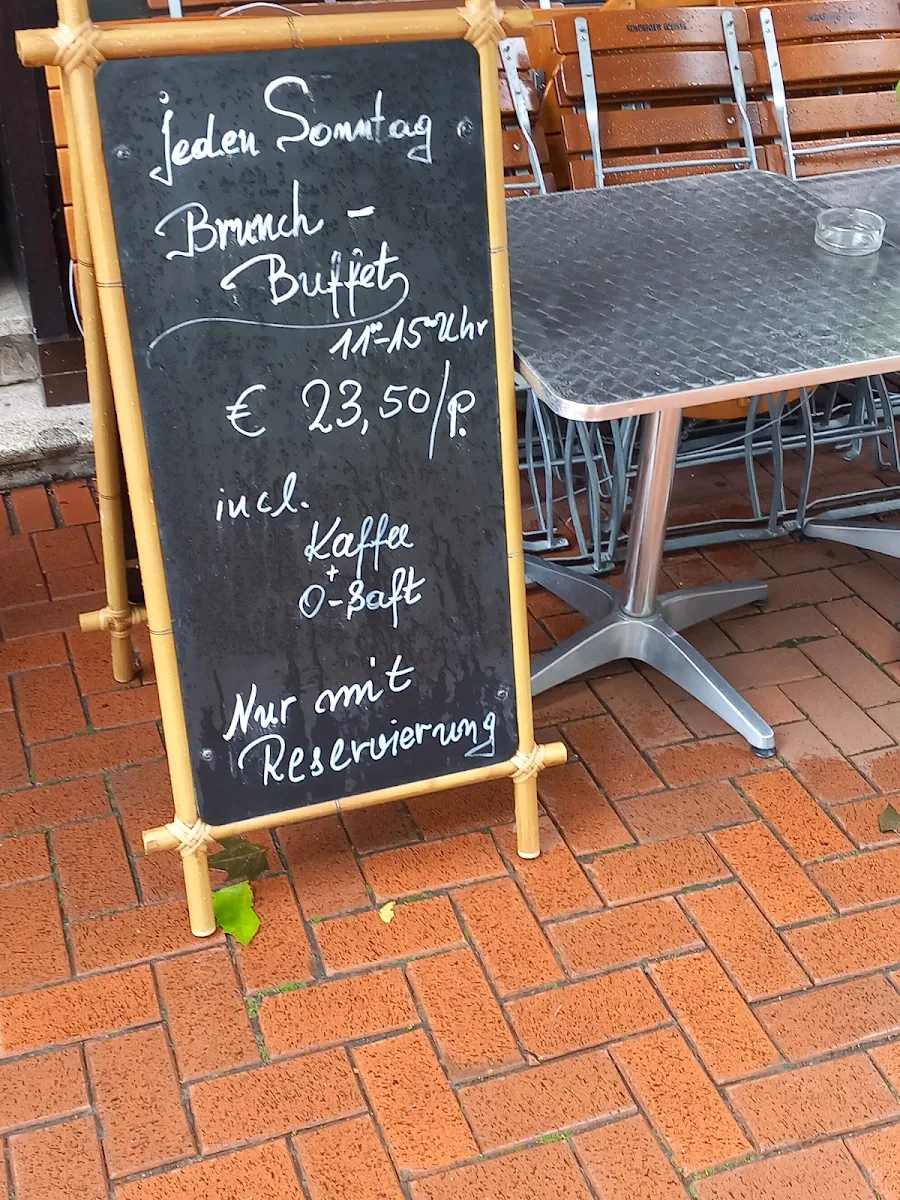 jeden Sonntag
Brunch -
Buffet
11⁰⁰-15⁰⁰ Uhr
€ 23,50/p.
incl.
Kaffee
+
O-Saft
Nur mit
Reservierung